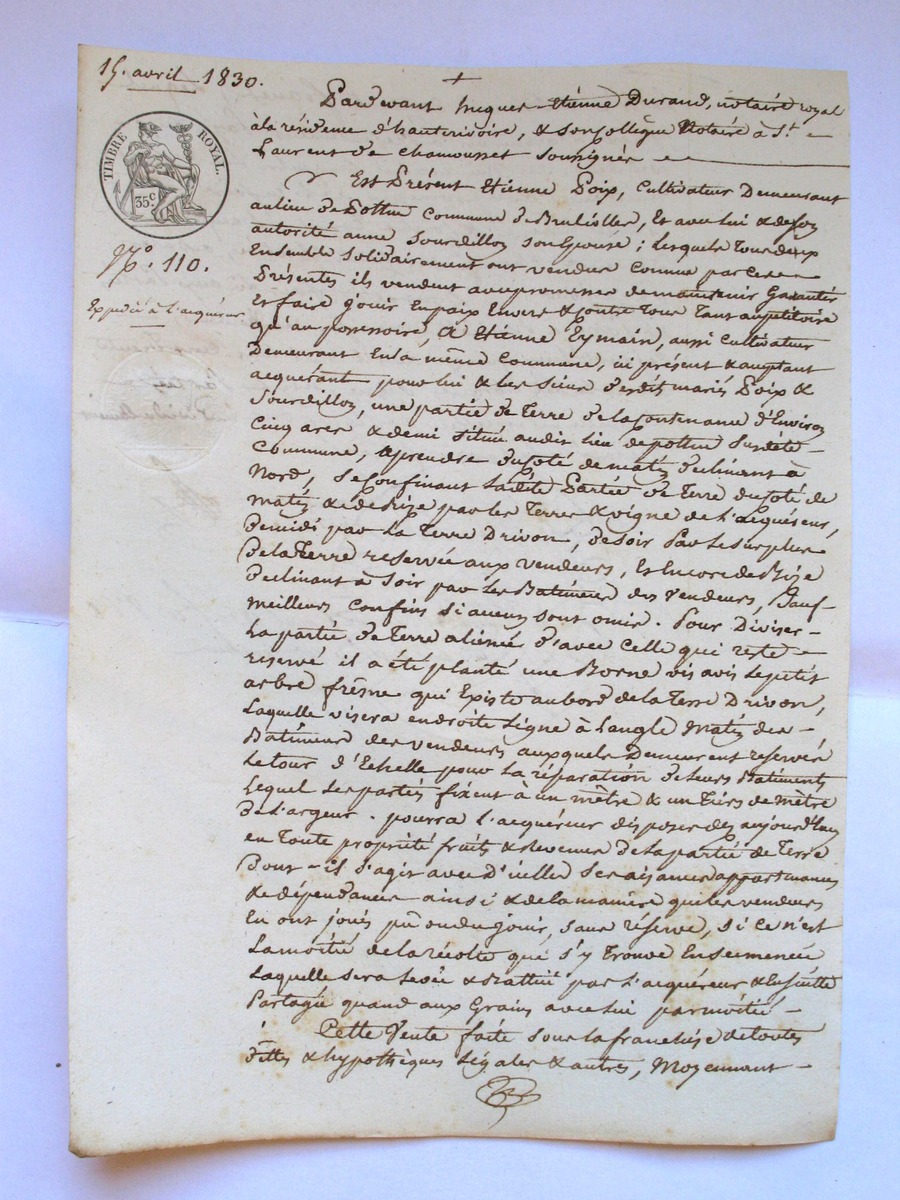 15. avril 1830.
TIMBRE ROYAL.
35 c
N.º 110.
Expedié à l'acquéreur
Pardevant hugues Etiénne Durand, notaire royal
à la résidence d'hauterivoire, & son Collègue Notaire à S.t
Laurent de Chamousset soussignés
Est Présent Etienne Poix, Cultivateur Demeurant
au lieu de Pottu Commune de Brulioller, Et avec lui & de son
autorité anne Sourdillon son Epouse ; lesquels tous deux
Ensemble solidairement ont vendu Comme par Ces
Présentes ils vendent avec promesse de maintenir Garantir
Et faire jouir En paix Envers & Contre tous tant au pétitoire
qu'au possessoire, à Etienne Eymain, aussi Cultivateur
Demeurant En la même Commune, ici présent & acceptant
acquérant pour lui & les siens desdits mariés Poix &
Sourdillon, une partie de Terre de la Contenance d'Environ
Cinq ares & demi située audit lieu de pottu susdite
Commune, à prendre du Coté de matin déclinant à
Nord, se Confinant ladite Partie de Terre du Coté de
matin & de Bize par les Terres & vigne de l'acquéreur,
de midi par la Terre Drivon, de soir Par le surplus
De la Terre reservée aux vendeurs, Et Encore de Bize
declinant à Soir par les Batiments des Vendeurs, Sauf
meilleurs Confins si aucuns sont omis. Pour Diviser
la partie de Terre aliénée d'avec Celle qui reste
reservé il a été planté une Borne vis avis le petit
arbre frêsne qui Existe au bord de la Terre Drivon,
Laquelle visera en droite Ligne à Langle Matin des
Batiments des vendeurs auxquels Demeurent reservés
Le tour d'Echelle pour la réparation de leurs Batiments
Lequel les parties fixent à un mêtre & un tiers de mêtre
de L'argeur. pourra l'acquéreur disposer dès aujourd'huy
en toute propriété fruits & Revenus De la partie de Terre
Dont il s'agit avec D'icelle ses aisances appartenances
& dépendances ainsi & de la manière que les vendeurs
En ont jouis pû ou du jouir, sans réserve, si Ce n'est
La moitié de la récolte qui s'y trouve Ensemencée
Laquelle sera levée & Battue par l'acquéreur & Ensuitte
Partagée quand aux Grains avec lui par moitié
Cette Vente faite sous la franchise de toutes
dettes & hypothèques Légales & autres, Moyennant